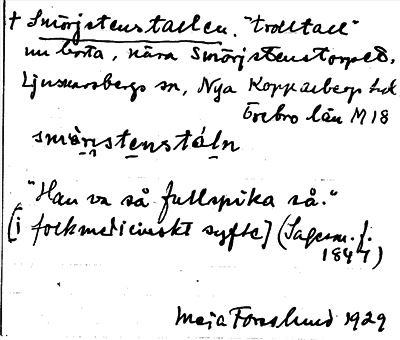 † Smörjstenstallen, "trolltall"
nu borta, nära Smörjstenstorpet,
Ljusnarsbergs sn, Nya Kopparbergs hd
Örebro län M18
smörjstenstáln
"Han va så fullspika så."
[i folkmedicinskt syfte] (Sagesm. f.
1847)
Meja Forslund 1929